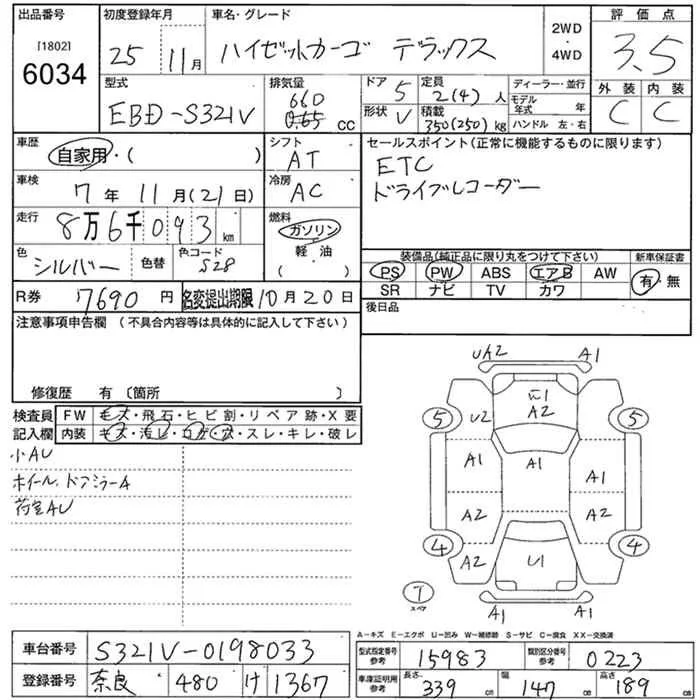 出品番号 初度登録年月 車名・グレード 2WD 評価点
[1802] 6034 25 11月 ハイゼットカーゴ デラックス ・4WD 3.5
型式 排気量 ドア 5 定員 2(4)人 ディーラー・並行 外装 内装
EBD-S321V 660 0.65 cc 形状 V 積載 350(250)kg モデル年式 年 C C
ハンドル 左・右
車歴 自家用・( ) シフト AT セールスポイント(正常に機能するものに限ります)
車検 7年11月(21日) 冷房 AC ETC
ドライブレコーダー
走行 8万6千093km 燃料 ガソリン
軽・油
( )
色 シルバー 色替 色コード S28 装備品(純正品に限り丸をつけて下さい) 新車保証書
PS PW ABS エアB AW 有・無
SR ナビ TV カワ
R券 7690円 名変提出期限10月20日 後日品
注意事項申告欄 (不具合内容等は具体的に記入して下さい)
修復歴 有〔箇所 〕
検査員 FW キズ・飛石・ヒビ割・リペア跡・X要
記入欄 内装 キス・汚レ・コゲ・穴・スレ・キレ・破レ
小AU
ホイール、ドアミラーA
荷室AU
UA2 A1
5 U2 A2 5
A1 A1 A1
A2 A2
4 A2 U1 4
T スペア A1 A1
A-キズ E-エクボ U-凹み W-補修跡 S-サビ C-腐食 XX-交換済
車台番号 S321V-0198033 型式指定番号 参考 15983 類別区分番号 参考 0223
登録番号 奈良 480 け 1367 車庫証明用 参考 長さ 339 cm 幅 147 cm 高さ 189 cm